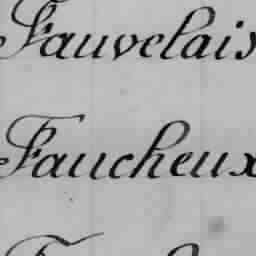 Fauvelais
Faucheux